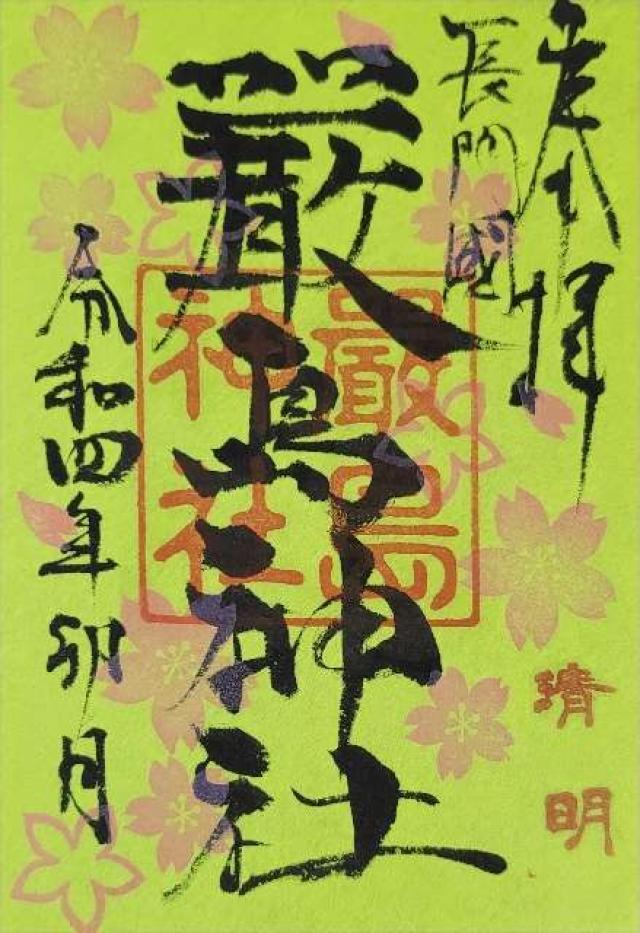 奉拝
長門國
清明
厳島神社
嚴島神社
令和四年卯月